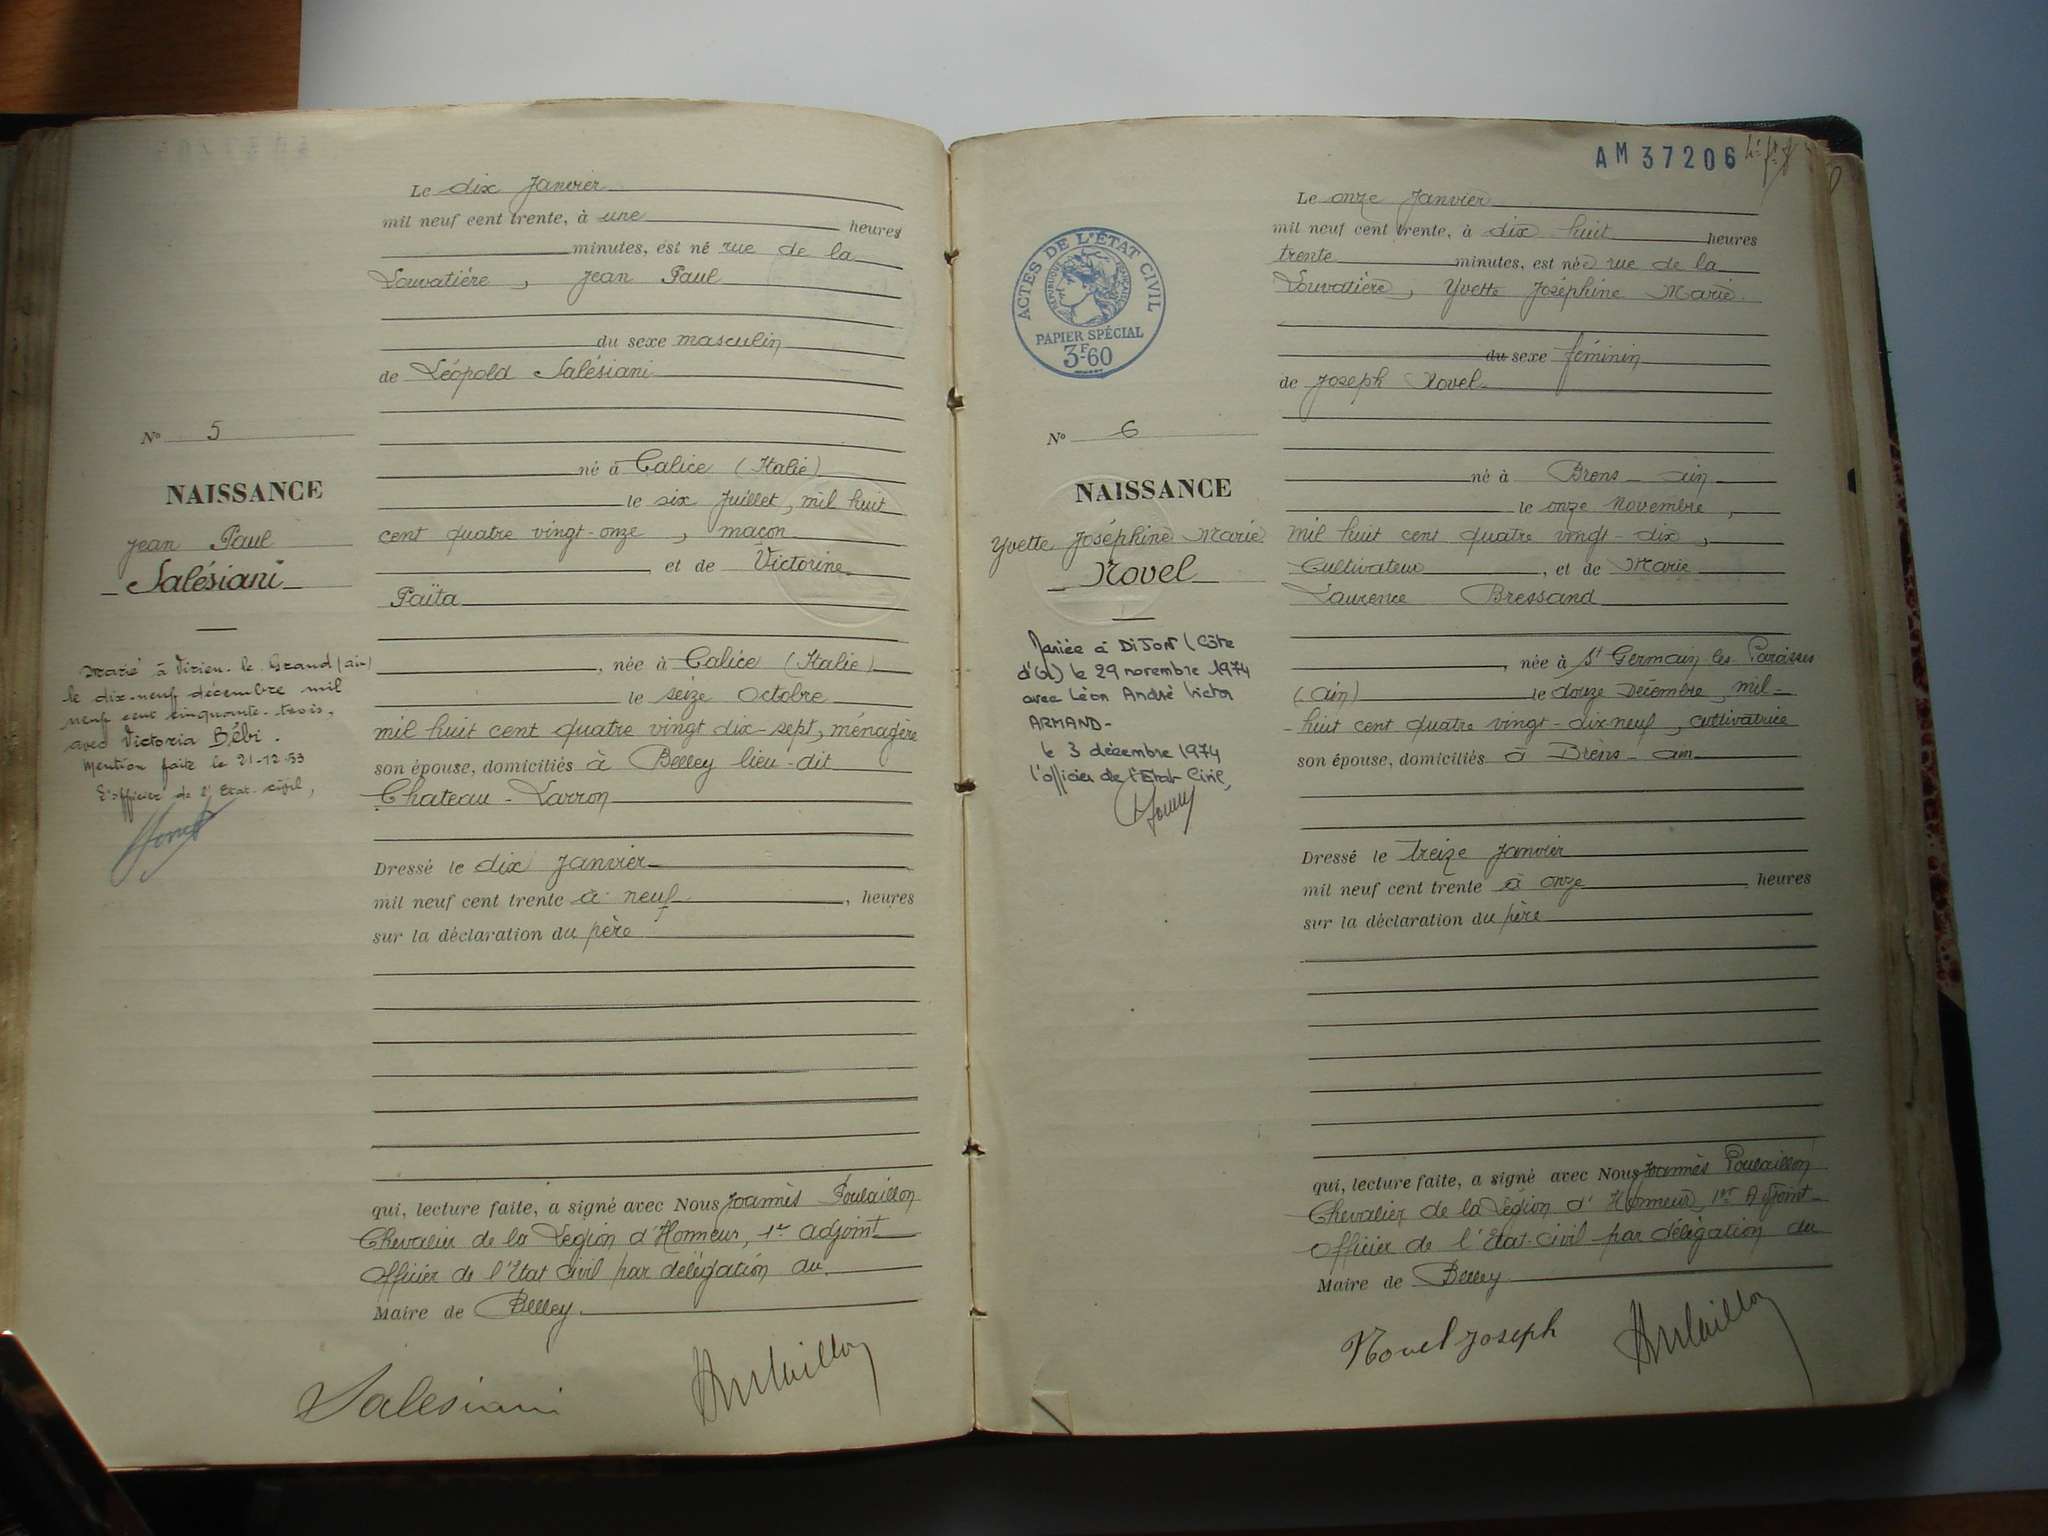 Le dix Janvier
mil neuf cent trente, à une heures
minutes, est né rue de la
Louvatière, Jean Paul
du sexe masculin
de Léopold Salésiani
né à Calice (Italie)
le six Juillet, mil huit
cent quatre vingt-onze, maçon
et de Victorine
Païta
, née à Calice (Italie)
le seize Octobre
mil huit cent quatre vingt dix-sept, ménagère
son épouse, domiciliés à Belley lieu-dit
Chateau-Larron
Dressé le dix Janvier
mil neuf cent trente à neuf, heures
sur la déclaration du père
qui, lecture faite, a signé avec Nous Joannès Poulaillon
Chevalier de la Légion d'Honneur, 1er adjoint
Officier de l'Etat Civil par délégation du
Maire de Belley.
Salesiani
No 5
NAISSANCE
Jean Paul
Salésiani
Marié à Virieu-le-Grand (ain)
le dix-neuf décembre mil
neuf cent cinquante-trois,
avec Victoria Bébi.
Mention faite le 21-12-53
L'officier de l'Etat-civil,
AM 37206
ACTES DE L'ÉTAT CIVIL
RÉPUBLIQUE FRANÇAISE
PAPIER SPÉCIAL
3F60
Le onze Janvier
mil neuf cent trente, à dix huit heures
trente minutes, est née rue de la
Louvatière, Yvette Joséphine Marie
du sexe féminin
de Joseph Novel
né à Brens-ain
le onze Novembre,
mil huit cent quatre vingt-dix,
Cultivateur, et de Marie
Laurence Bressand
, née à St Germain les Paroisses
(ain) le douze Décembre, mil-
-huit cent quatre vingt-dix neuf, cultivatrice
son épouse, domiciliés à Brens-ain
Dressé le treize Janvier
mil neuf cent trente à onze, heures
sur la déclaration du père
qui, lecture faite, a signé avec Nous Joannès Poulaillon
Chevalier de la Légion d'Honneur, 1er Adjoint
Officier de l'Etat-Civil par délégation du
Maire de Belley
Novel Joseph
No 6
NAISSANCE
Yvette Joséphine Marie
Novel
Mariée à DIJON (Côte
d'Or) le 29 novembre 1974
avec Léon André Victor
ARMAND-
le 3 décembre 1974
l'officier de l'Etat Civil